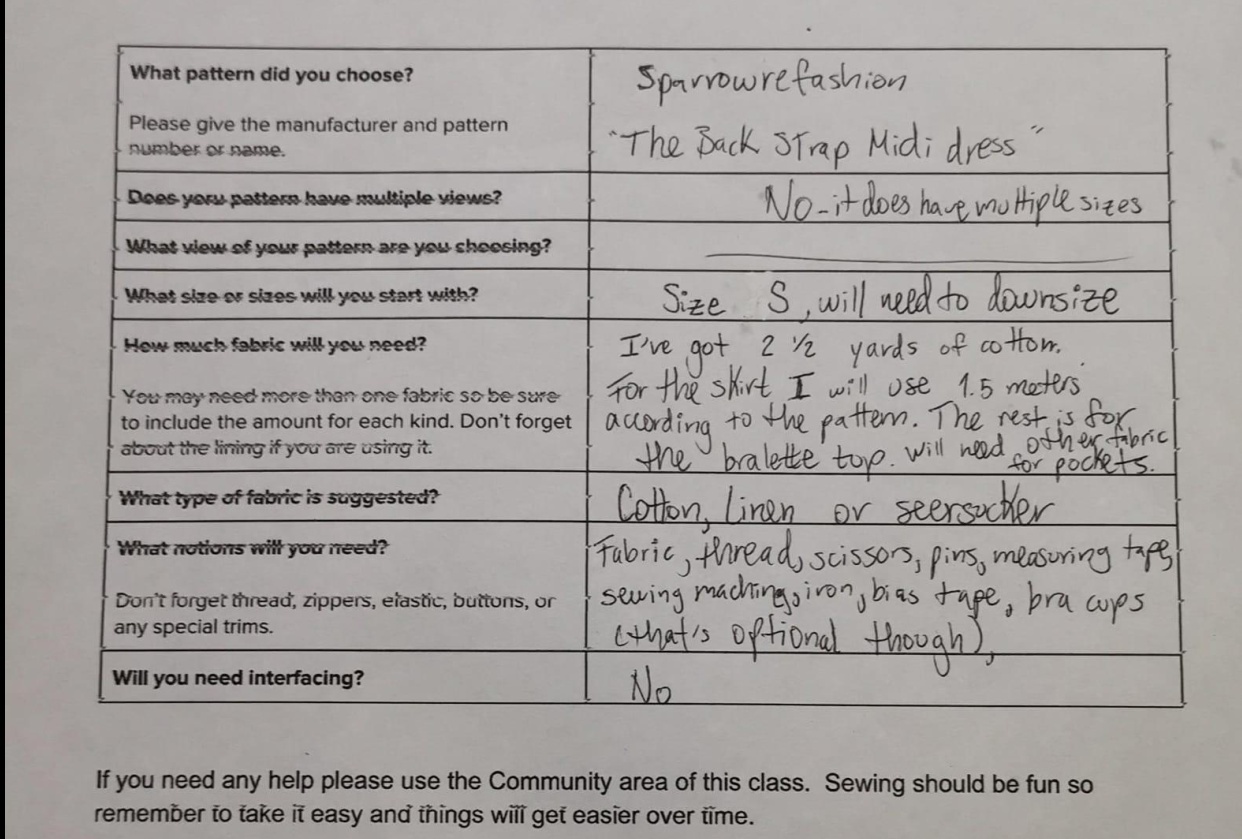 What pattern did you choose?
Sparrowrefashion
Please give the manufacturer and pattern
number or name.
"The Back Strap Midi dress"
Does yoru pattern have multiple views?
No - it does have multiple sizes
What view of your pattern are you choosing?
What size or sizes will you start with?
Size S, will need to downsize
How much fabric will you need?
You may need more than one fabric so be sure
to include the amount for each kind. Don't forget
about the lining if you are using it.
I've got 2 ½ yards of cotton.
For the skirt I will use 1.5 meters
according to the pattern. The rest is for
the bralette top. will need other fabric
for pockets.
What type of fabric is suggested?
Cotton, linen or seersucker
What notions will you need?
Don't forget thread, zippers, elastic, buttons, or
any special trims.
Fabric, thread, scissors, pins, measuring tape,
sewing machine, iron, bias tape, bra cups
(that's optional though),
Will you need interfacing?
No
If you need any help please use the Community area of this class. Sewing should be fun so
remember to take it easy and things will get easier over time.